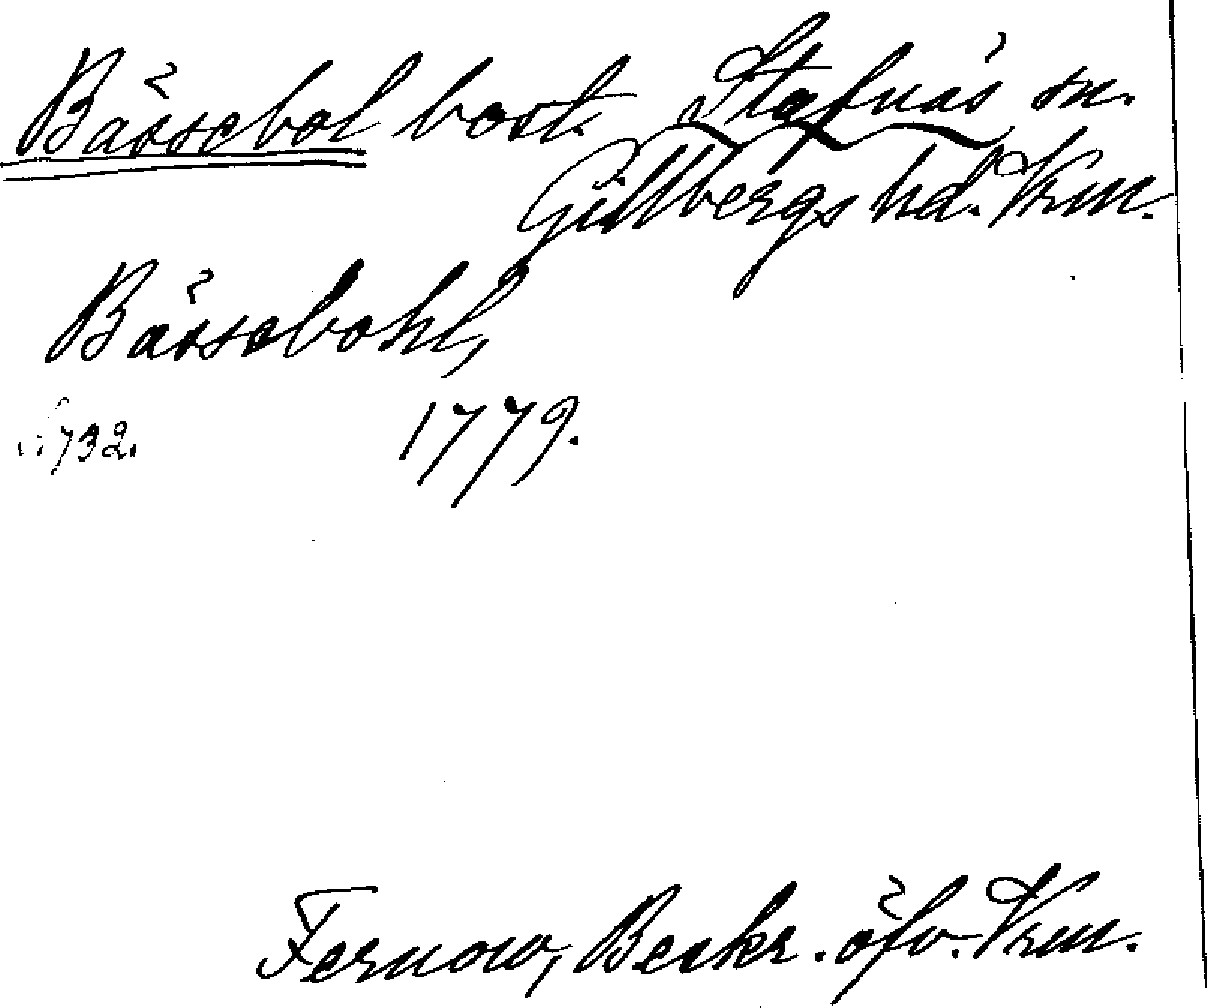 Bässebol bost. Stafnäs sn.
Gillbergs hd. Vrm.
Bässebohl,
732. 1779.
Fernow, Beskr. öfv. Vrm.